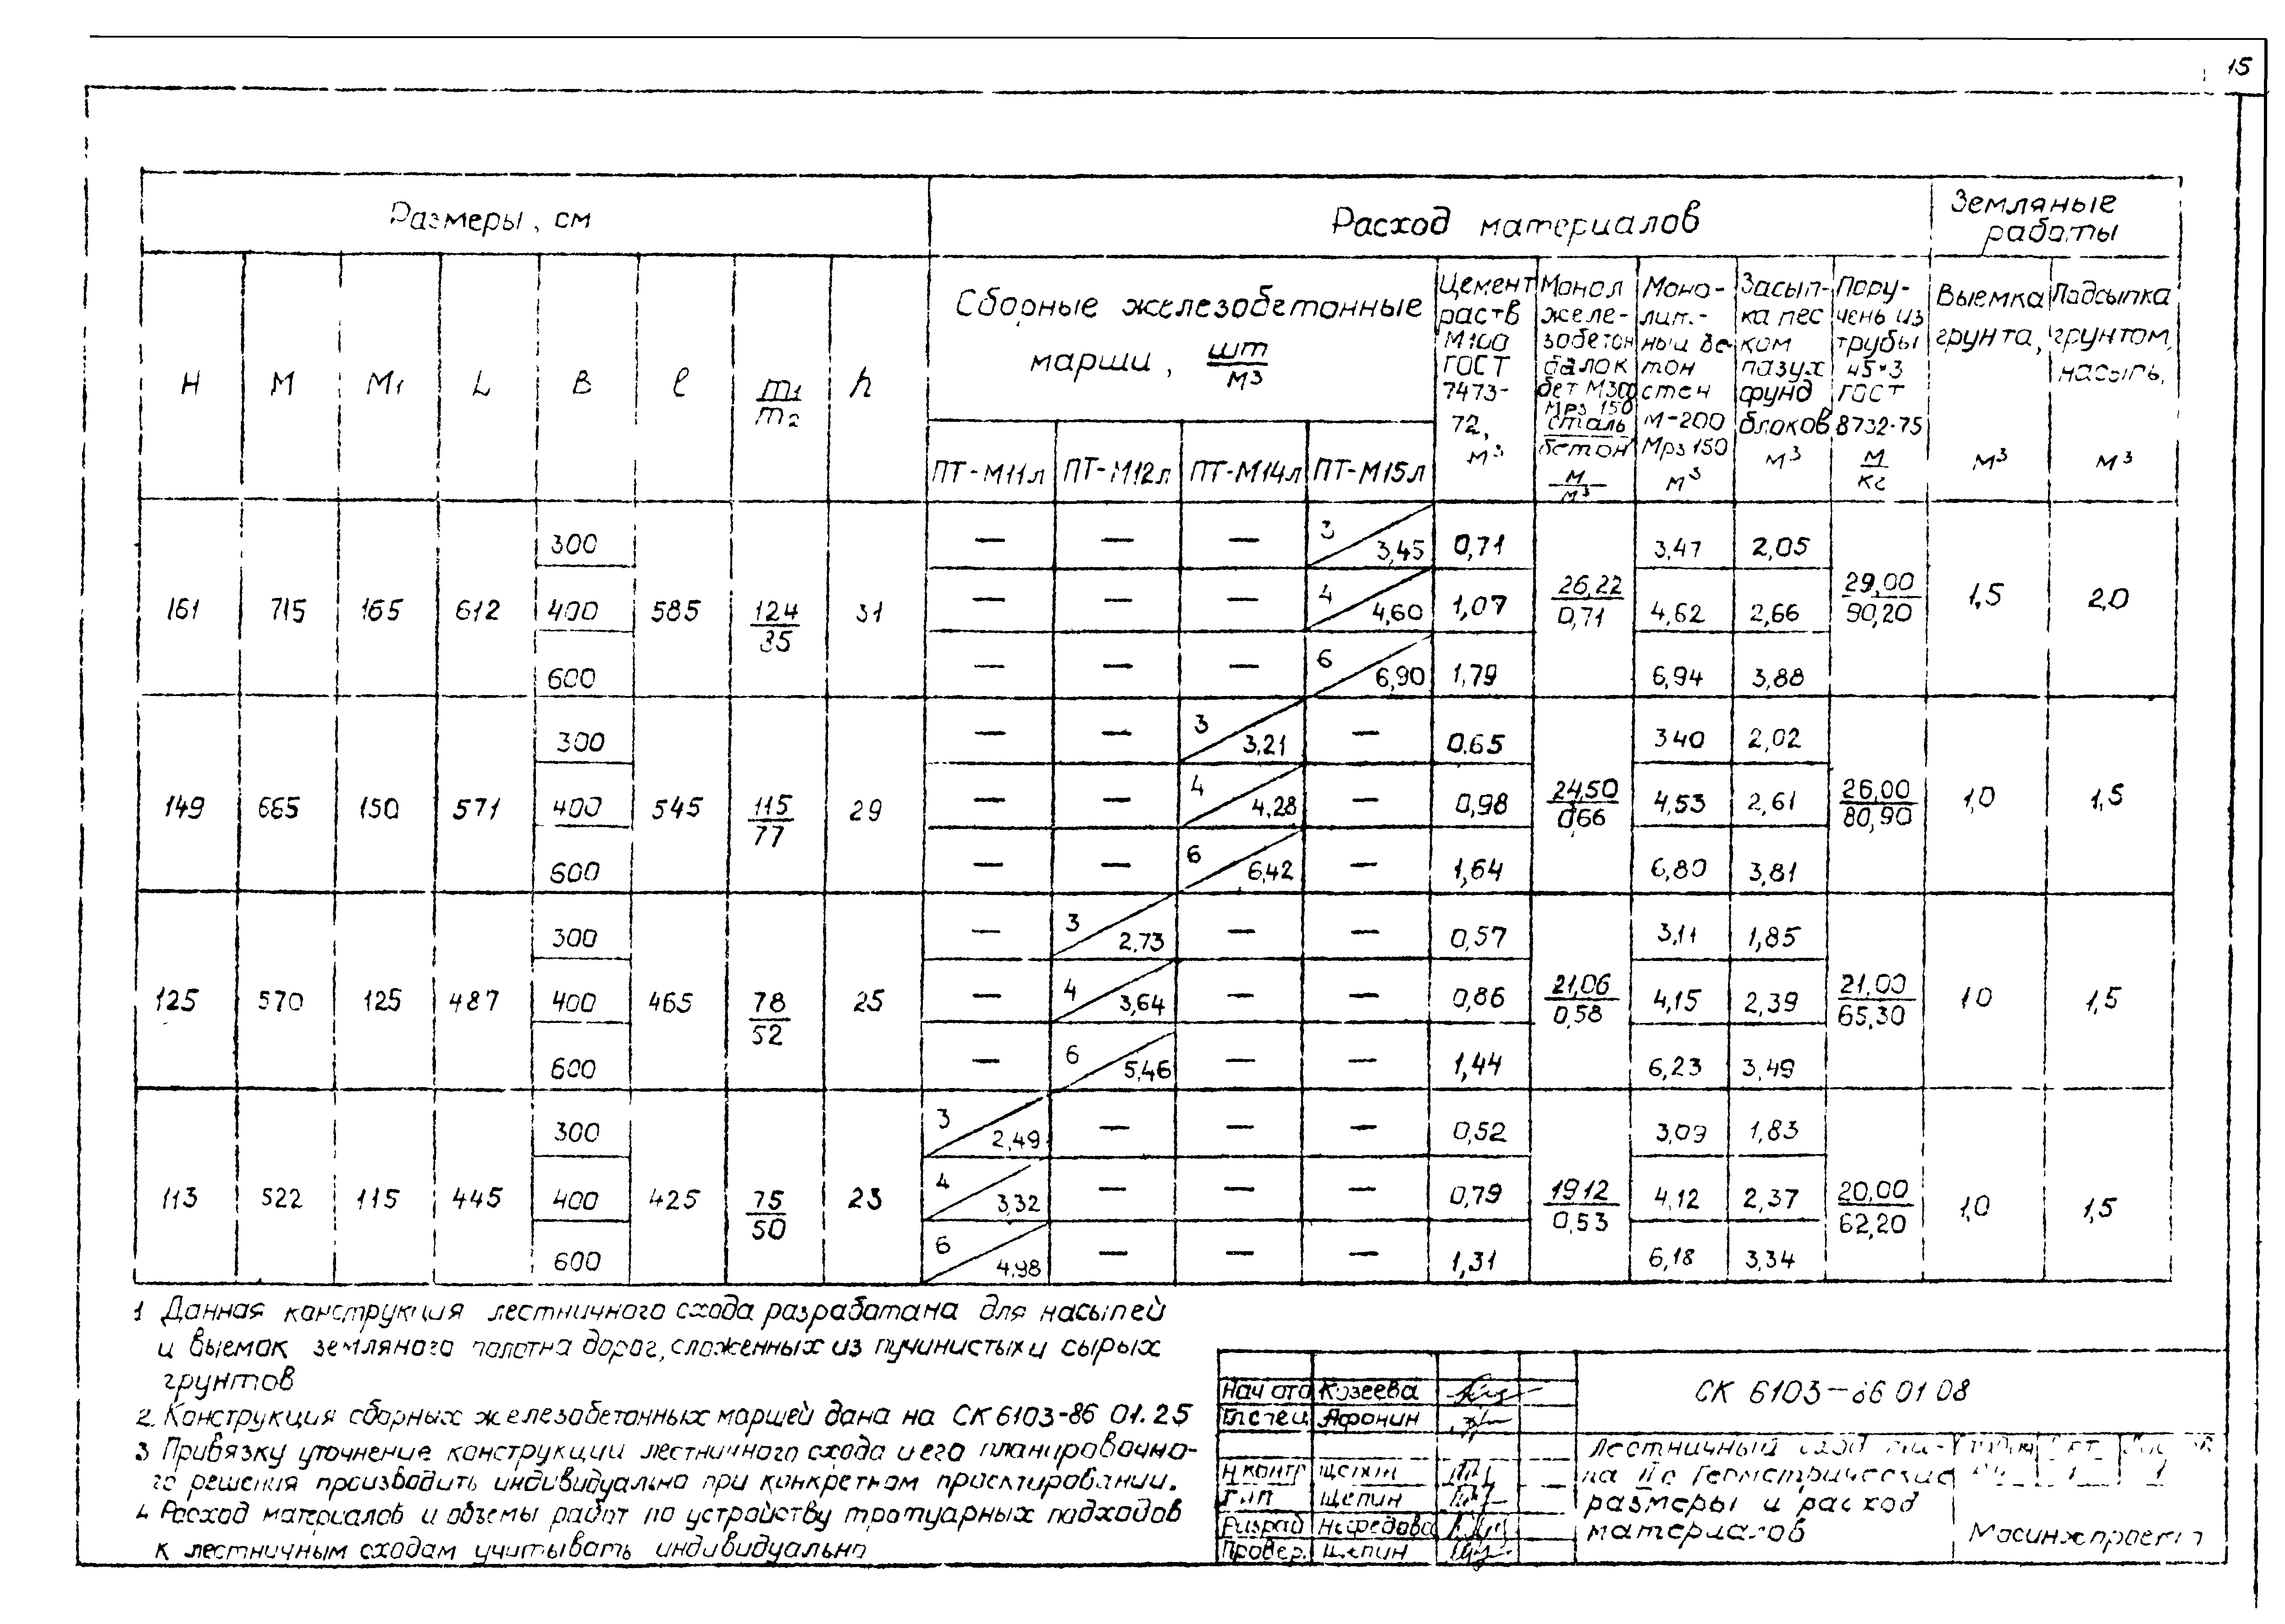 15
Размеры, см
Расход материалов
Земляные
работы
H M M1 L B ℓ m1/m2 h
Сборные железобетонные
марши, шт/м3
ПТ-М11л ПТ-М12л ПТ-М14л ПТ-М15л
Цемент
раств
М100
ГОСТ
7473-
72,
м3
Монол
желе-
зобетон
балок
бет М300
Мрз 150
сталь
бетон
м/м3
Моно-
лит.-
ный бе-
тон
стен
М-200
Мрз 150
м3
Засып-
ка пес
ком
пазух
фунд
блоков
м3
Пору-
чень из
трубы
45*3
ГОСТ
8732-75
м/кг
Выемка
грунта,
м3
Подсыпка
грунтом,
насыпь,
м3
300 — — — 3/3,45 0,71 3,47 2,05
161 715 165 612 400 585 124/35 31 — — — 4/4,60 1,07 26,22/0,71 4,62 2,66 29,00/90,20 1,5 2,0
600 — — — 6/6,90 1,79 6,94 3,88
300 — — 3/3,21 — 0,65 340 2,02
149 665 150 571 400 545 115/77 29 — — 4/4,28 — 0,98 24,50/0,66 4,53 2,61 26,00/80,90 1,0 1,5
600 — — 6/6,42 — 1,64 6,80 3,81
300 — 3/2,73 — — 0,57 3,11 1,85
125 570 125 487 400 465 78/52 25 — 4/3,64 — — 0,86 21,06/0,58 4,15 2,39 21,00/65,30 10 1,5
600 — 6/5,46 — — 1,44 6,23 3,49
300 3/2,49 — — — 0,52 3,09 1,83
113 522 115 445 400 425 75/50 23 4/3,32 — — — 0,79 19,12/0,53 4,12 2,37 20,00/62,20 1,0 1,5
600 6/4,98 — — — 1,31 6,18 3,34
1 Данная конструкция лестничного схода разработана для насыпей
и выемок земляного полотна дорог, сложенных из пучинистых и сырых
грунтов
2. Конструкция сборных железобетонных маршей дана на СК 6103-86 01.25
3 Привязку уточнение конструкции лестничного схода и его планировочно-
го решения производить индивидуально при конкретном проектировании.
4 Расход материалов и объемы работ по устройству тротуарных подходов
к лестничным сходам учитывать индивидуально
Нач отд Козеева
Гл спец Афонин
Н контр Щепин
ГИП Щепин
Разраб Нефедова
Провер. Щепин
СК 6103-86 01 08
Лестничный сход ти-
па Геометрические
размеры и расход
материалов
1 1
Мосинжпроект